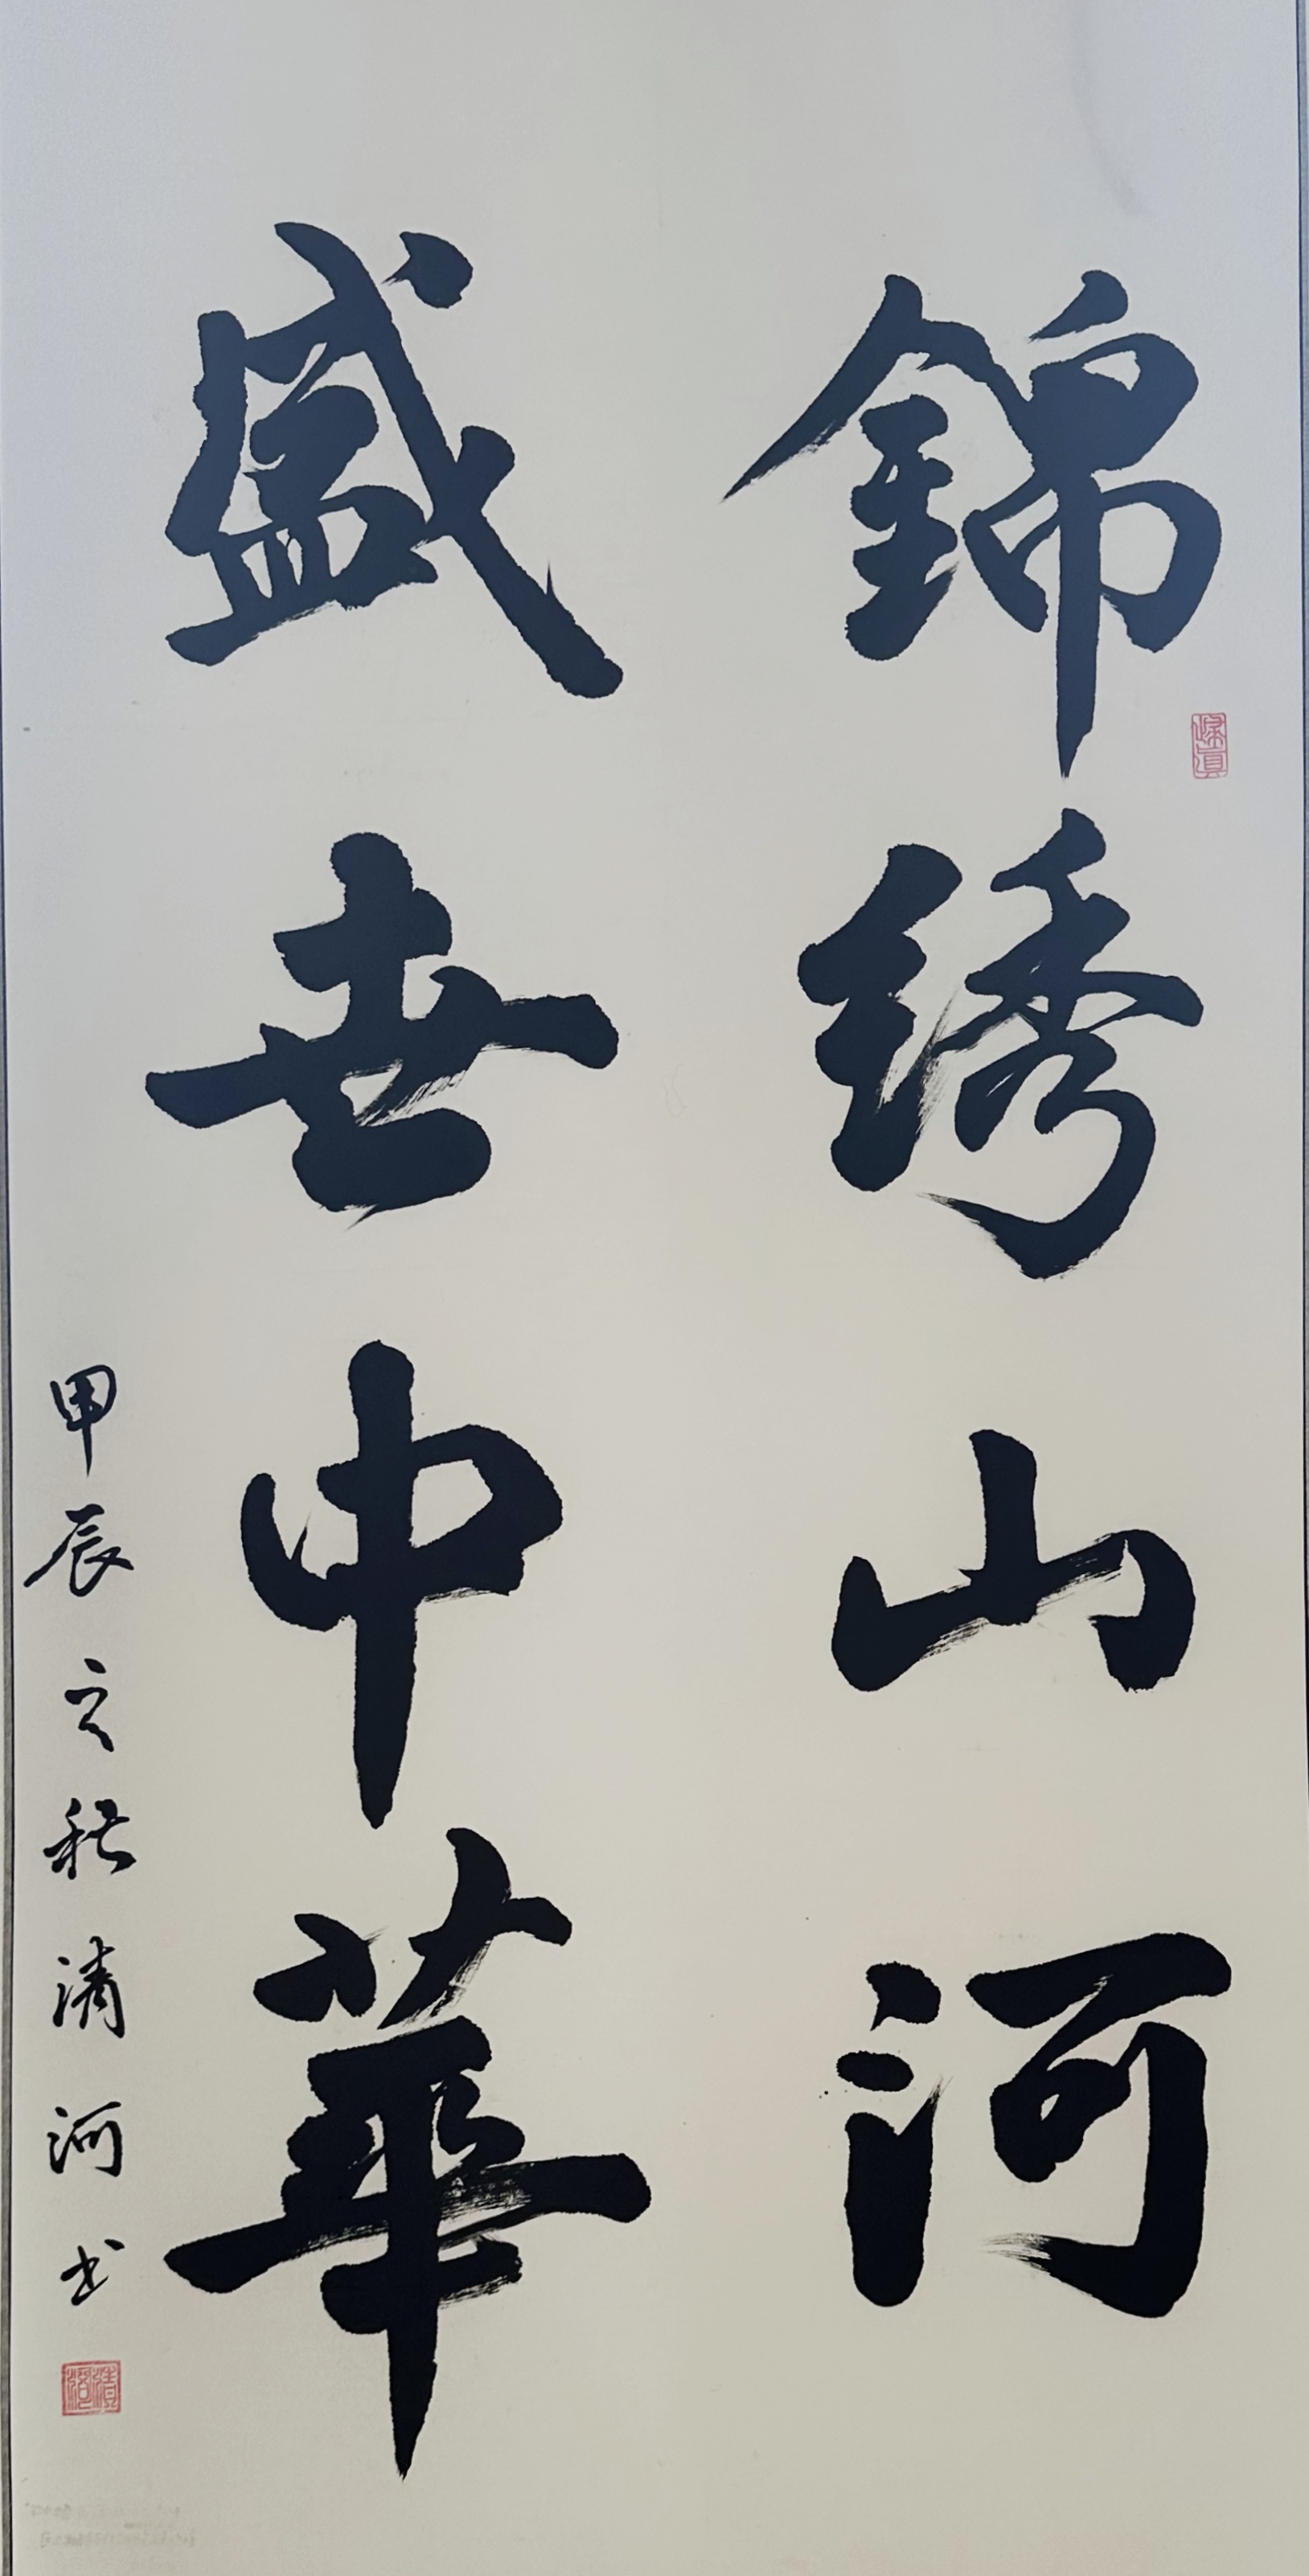 錦绣山河
盛世中華
甲辰之秋清河书